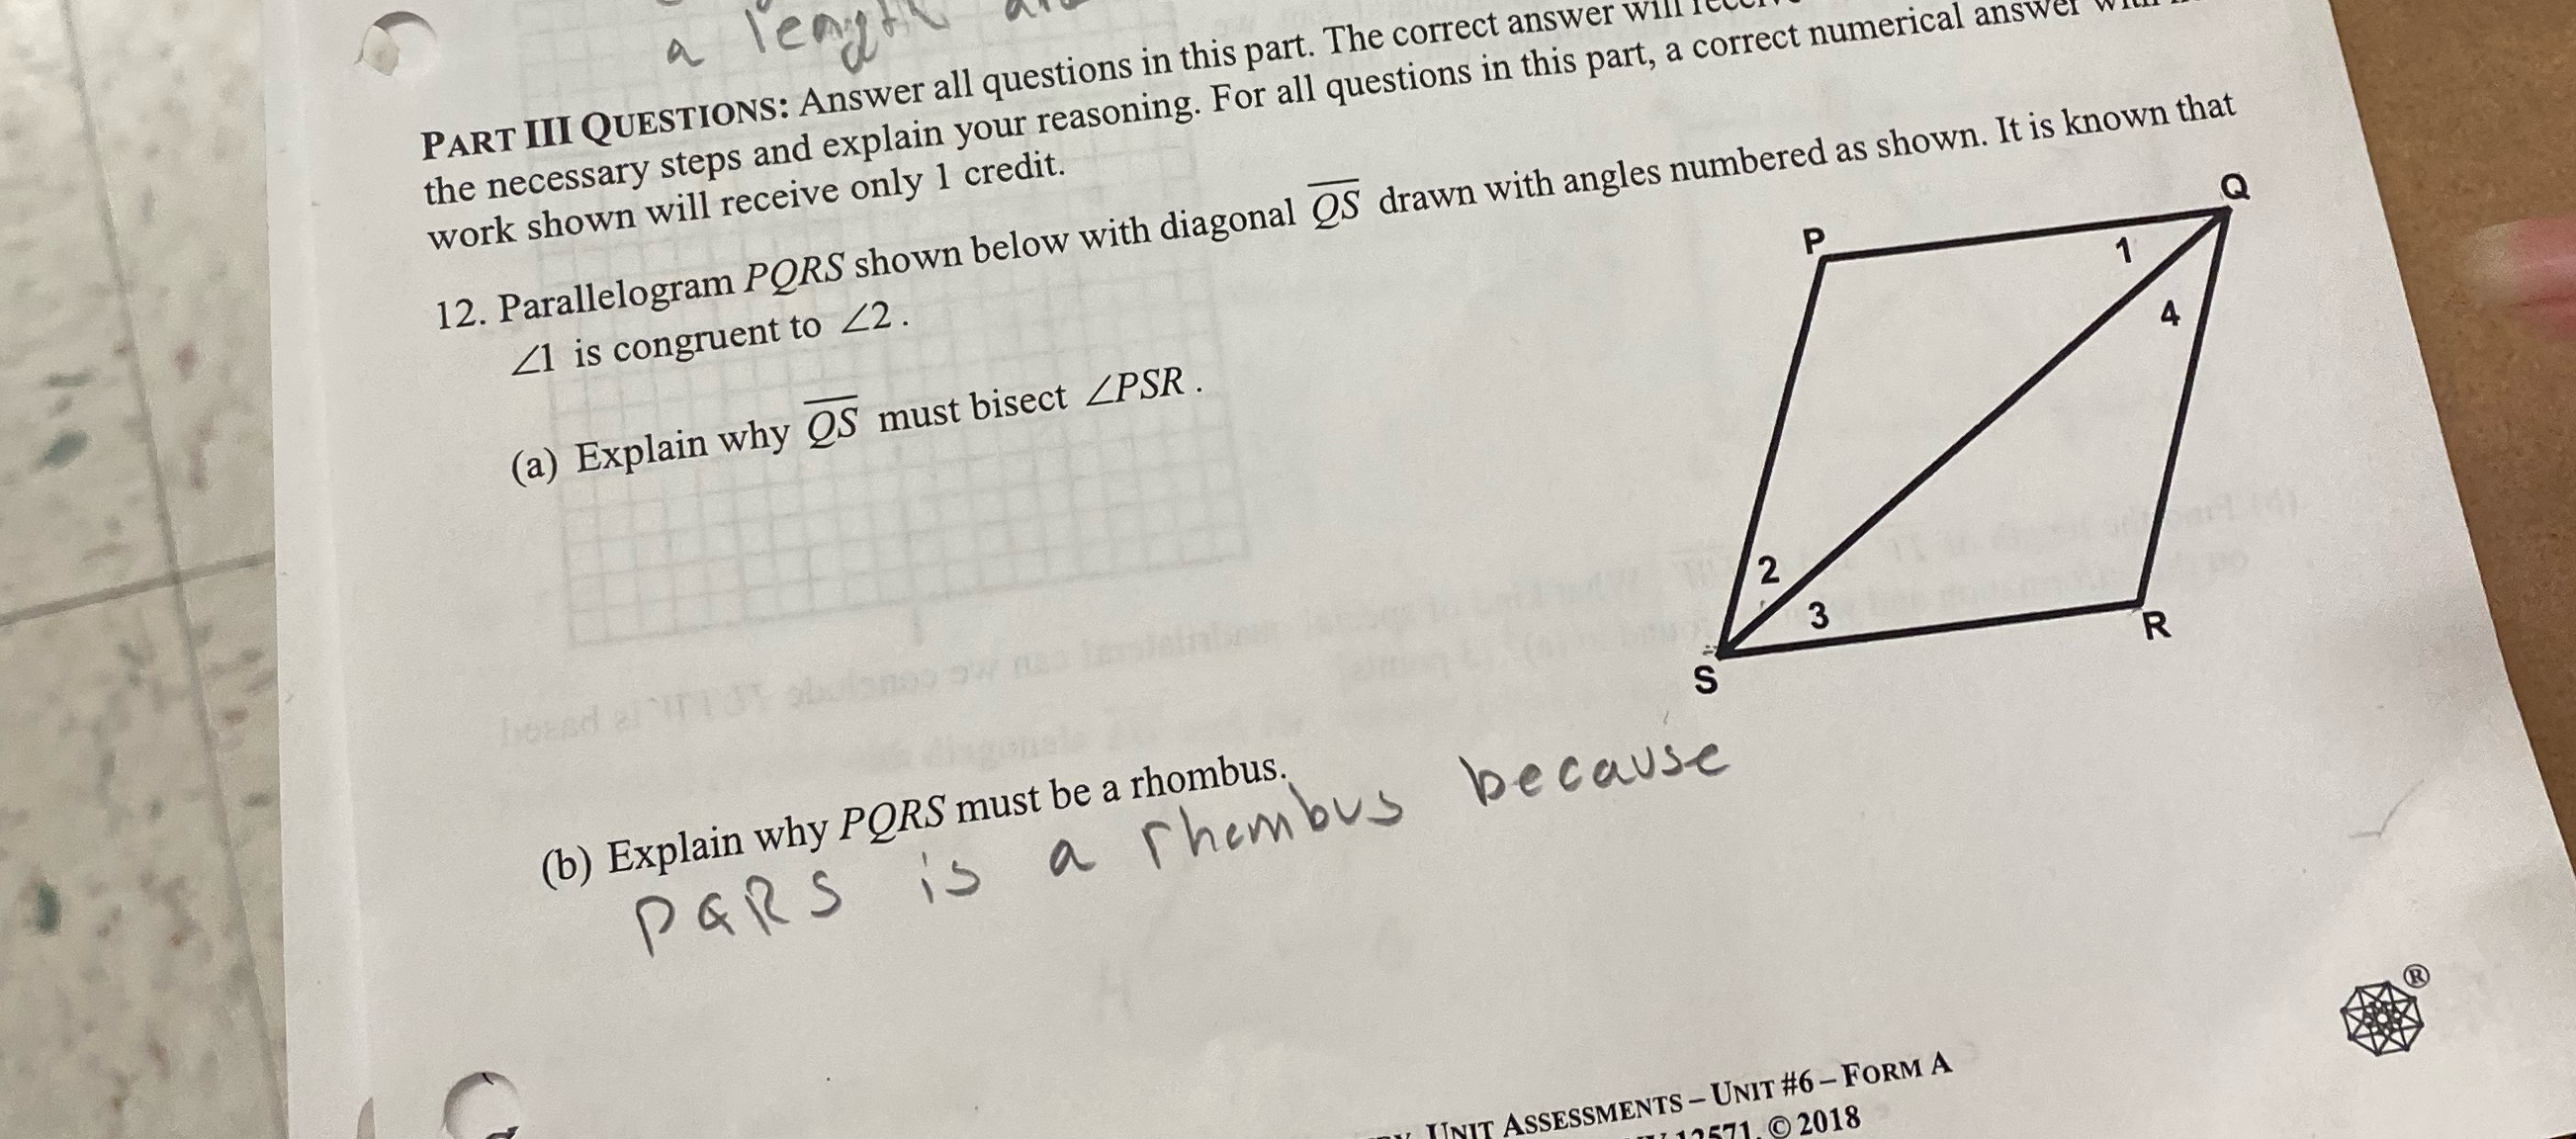 a length
PART III QUESTIONS: Answer all questions in this part. The correct answer will
the necessary steps and explain your reasoning. For all questions in this part, a correct numerical answer with
work shown will receive only 1 credit.
12. Parallelogram PQRS shown below with diagonal QS drawn with angles numbered as shown. It is known that
∠1 is congruent to ∠2.
(a) Explain why QS must bisect ∠PSR.
P
Q
1
4
2
3
R
S
(b) Explain why PQRS must be a rhombus.
PQRS is a rhombus because
®
UNIT ASSESSMENTS – UNIT #6 – FORM A
12571, © 2018